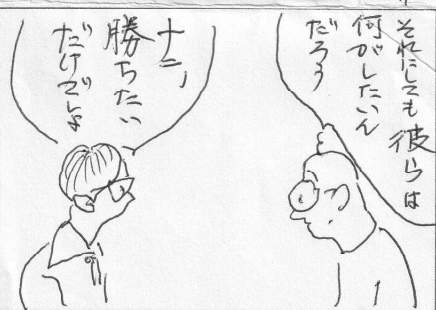 それにしても彼らは
何がしたいん
だろう
ナニ、
勝ちたい
だけでしょ